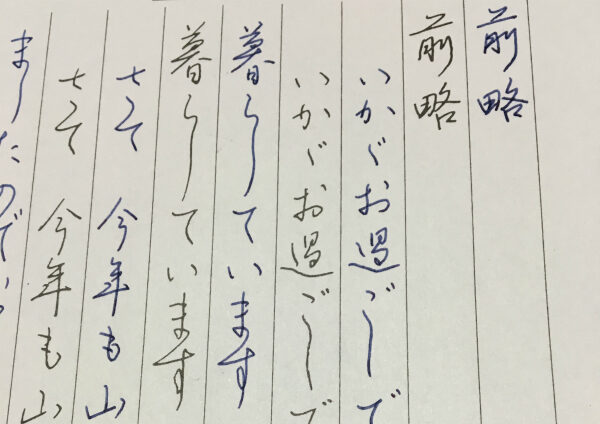 前略
前略
いかがお過ごしで
いかがお過ごしで
暮らしています
暮らしています
さて 今年も山
さて 今年も山
ましたので